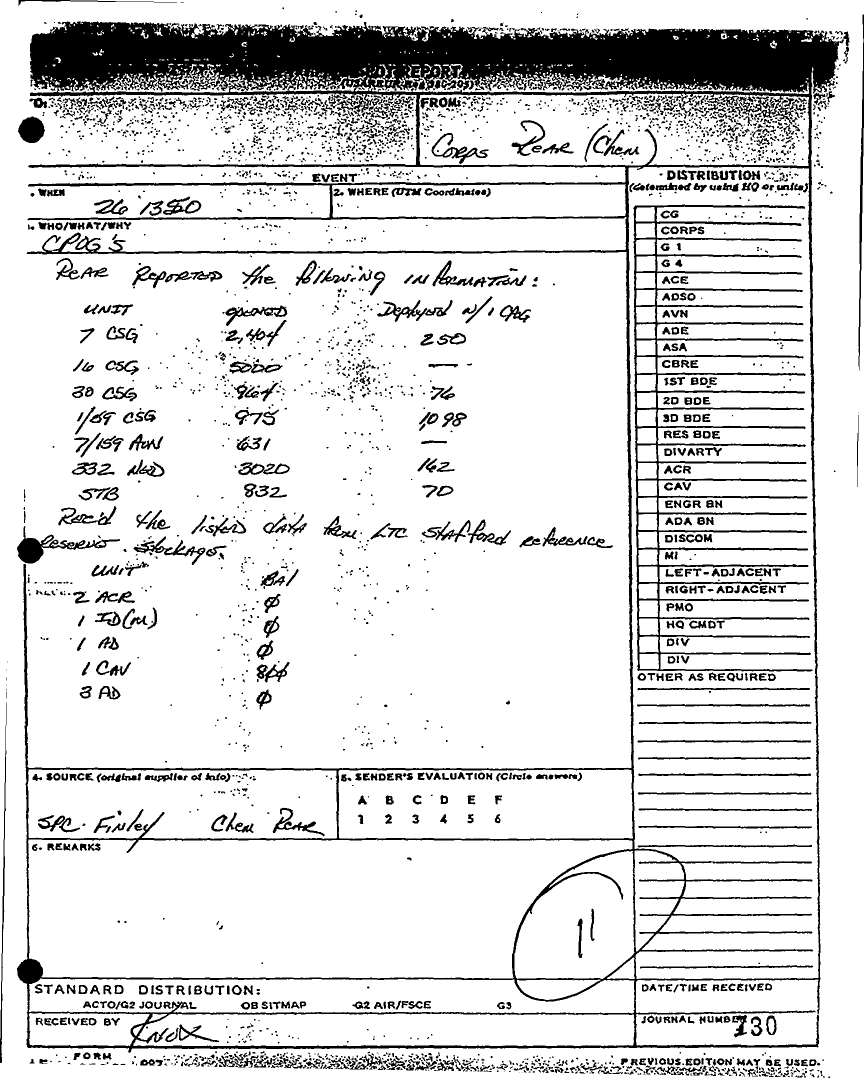 REPORT
FROM:
Corps Rear (Chem)
EVENT
DISTRIBUTION
(determined by using HQ or units)
. WHEN
2. WHERE (UTM Coordinates)
26 1350
. WHO/WHAT/WHY
CPOG'S
Rear Reported the following information:
UNIT opened Deployed w/1 CPOG
7 CSG 2,404 250
16 CSG 5000 —
30 CSG 964 76
1/159 CSG 975 1,098
7/159 AVN 631 —
332 MED 3020 162
STB 832 70
Rec'd the listed data from LTC Stafford reference
Reserve Stockage.
UNIT BAL
2 ACR Ø
1 ID(M) Ø
1 AD Ø
1 CAV
3 AD Ø
CG
CORPS
G 1
G 4
ACE
ADSO
AVN
ADE
ASA
CBRE
1ST BDE
2D BDE
3D BDE
RES BDE
DIVARTY
ACR
CAV
ENGR BN
ADA BN
DISCOM
MI
LEFT-ADJACENT
RIGHT-ADJACENT
PMO
HQ CMDT
DIV
DIV
OTHER AS REQUIRED
4. SOURCE (original supplier of info)
SPC. Finley Chem Rear
5. SENDER'S EVALUATION (Circle answers)
A B C D E F
1 2 3 4 5 6
6. REMARKS
11
STANDARD DISTRIBUTION:
ACTO/G2 JOURNAL OB SITMAP G2 AIR/FSCE G3
RECEIVED BY Knox
DATE/TIME RECEIVED
JOURNAL NUMBER 130
FORM
PREVIOUS EDITION MAY BE USED.